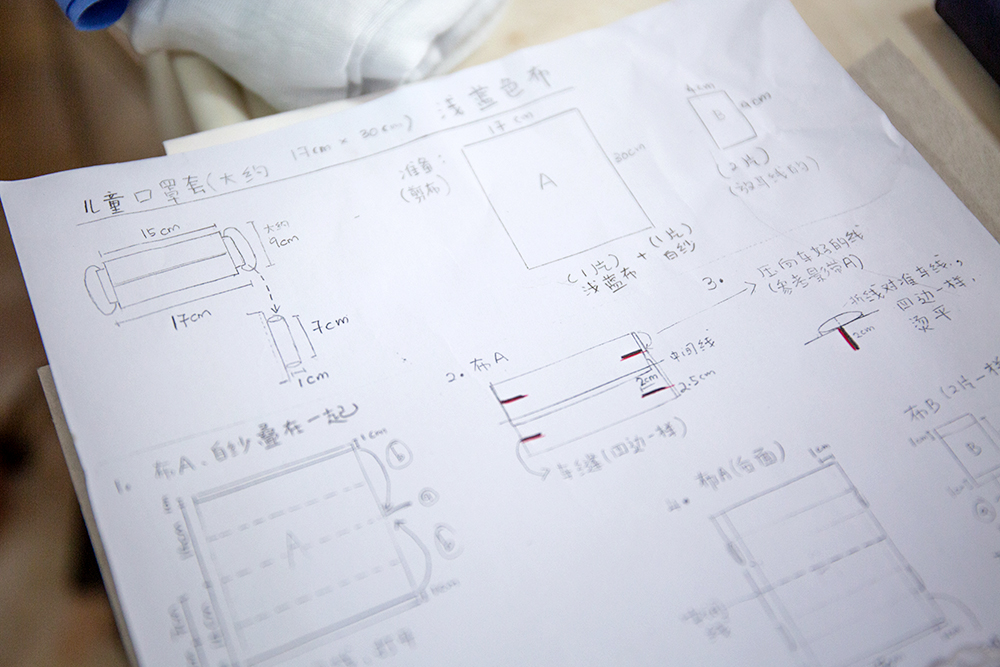 儿童口罩套(大约 17cm × 30cm) 浅蓝色布
15cm
大约
9cm
17cm
7cm
1cm
准量:
(剪布)
17cm
30cm
A
(1片) (1片)
浅蓝布 + 白纱
4cm
9cm
B
(2片)
1. 布A、白纱叠在一起
1cm
A
b
a
b
2. 布A
中间线
2cm
2.5cm
车缝(四边一样)
3. 压向车好的线
(参考影带A)
折线对准车线,
四边一样,
烫平
2cm
4. 布A(白面)
1cm
布B(2片一样
1cm
B
1cm
a